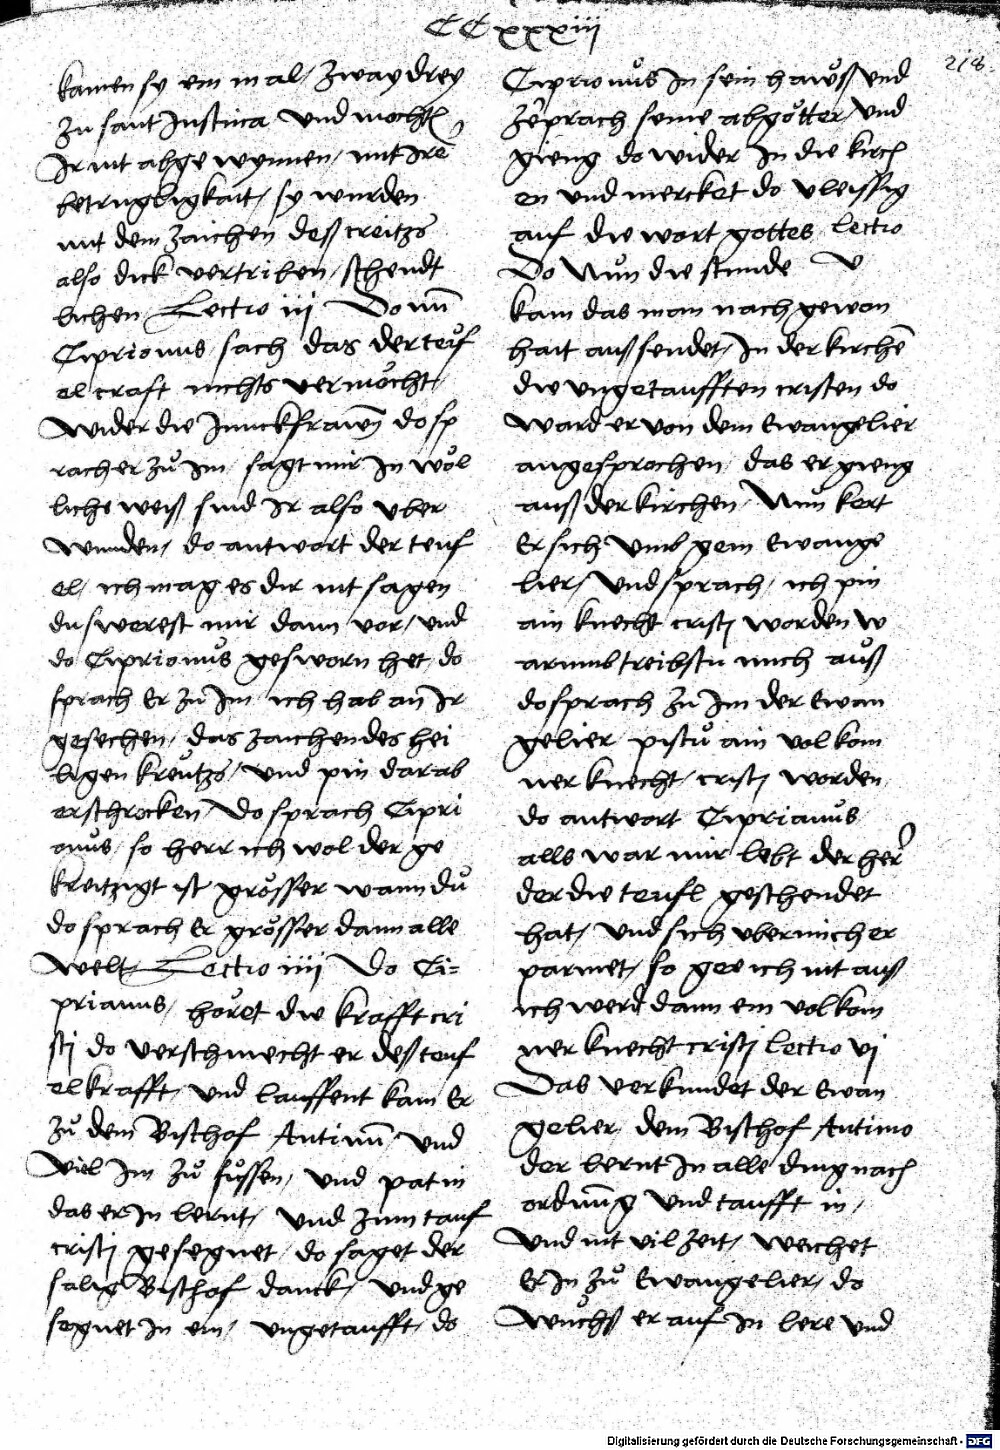 CCxxxiii
218
kamen sy ein mal / zway drey
zu sant Justina vnd mochtn̄
Ir nit abge wynnen / mit Irē
betrugligkait / sy wurden
mit dem zaichen deß creitzs
also dick vertriben / schendt
lichen Lectio iij Do nūn
Ciprionus sach das der teüf
el craft nichts vermöcht /
wider die Junckfrawn̄ do sp
rach er zů im / sagt mir In wöl
liche weiß sind Ir also vber
wunden / do antwort der teuf
el / ich mag es dir nit sagen
du swerest mir dann vor / vnd
do Ciprionŭs geswornhet do
sprach Er zů Im ich hab an Ir
gesechen / das zaichen des hei
ligen kreŭtzs / vnd pin darab
erschrocken / Do sprach Cipri
onŭs / so herr ich wol der ge
kreitzigt ist grösser wann dŭ
do sprach Er grösser dann alle
welt / Lectio iiij Do Ci=
prianus / höret die krafft cri
stj do verschmecht er deß teuf
el krafft / vnd lauffent kam Er
zŭ dem Bischof Antimū / vnd
viel Im zŭ fŭssen / vnd pat in
das er In lernt / vnd zum tauf
cristj gesegnet / do saget der
salig Bischof danck / vnd ge
segnet In ein / vngetaufft / do
Ciprionŭs In sein hawß vnd
zerprach seine abgötter / vnd
gieng do wider In die kirch
en vnd mercket do vleissig
auf die wort gottes Lectio
Do Nŭn die stunde v
kam das man nach gewon
hait auß sendet / In der kirchē
die vngetaufften cristen do
ward er von dem Ewangelier
angesprochen / das er gieng
auß der kirchen / Nŭn kert
Er sich vmb gein Ewange
lier / vnd sprach / ich pin
ain knecht cristj worden w
arumb treibstu mich auß
do sprach zŭ Im der Ewan
gelier pistŭ ain volkom
ner knecht / cristj worden
do antwort Ciprianus
alls war mir lebt der herr
der die teufl geschendet
hat / vnd sich vber mich er
parmet / so gee ich nit auß
ich werd dann ein volkom
ner knecht cristj Lectio vj
Das verkundet der Ewan
gelier dem Bischof Antimo
der lernt In alle ding nach
ordnŭng vnd taufft in /
vnd nit vil zeit / weichet
Er In zŭ Ewangelier / do
wŭchß er auf In lere vnd
Digitalisierung gefördert durch die Deutsche Forschungsgemeinschaft - DFG